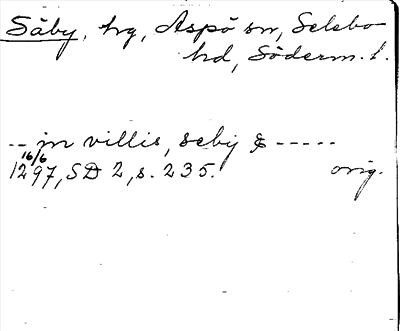 Säby, hg, Aspö sn, Selebo
hd, Söderm. l.
-- jn villis, sebij & -----
16/6
1297, SD 2, s. 235. orig.